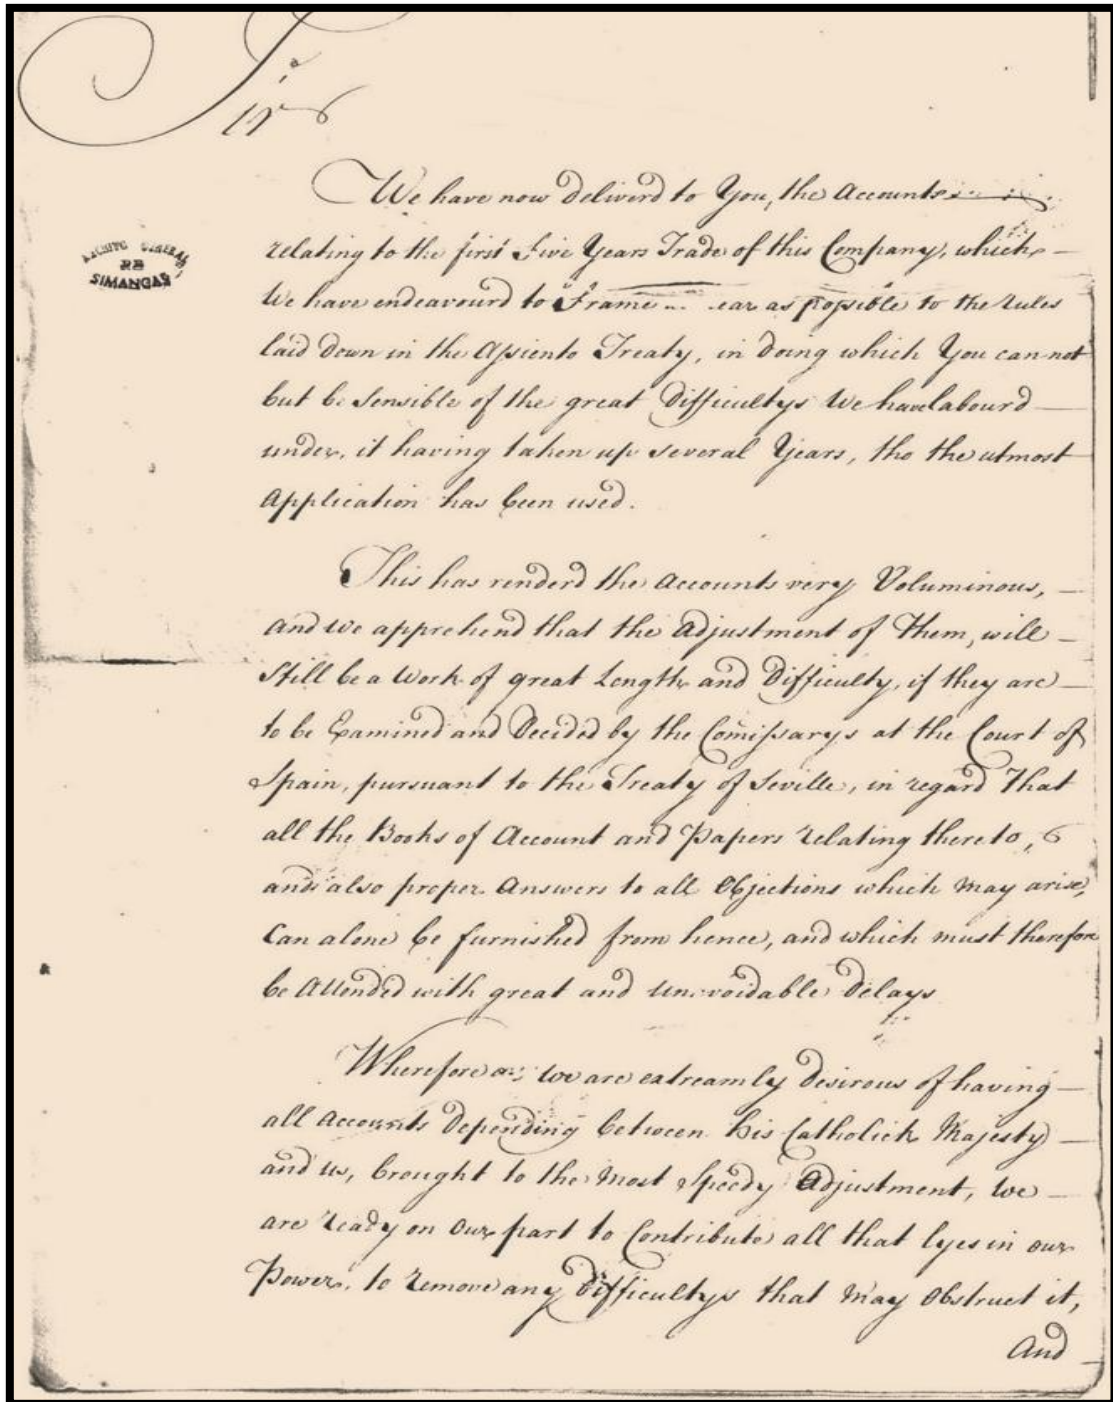 Sir
We have now deliverd to You, the Accounts
ARCHIVO GENERAL
DE
SIMANCAS
relating to the first Five Years Trade of this Company, which
We have endeavourd to Frame as possible to the rules
laid down in the Assiento Treaty, in doing which You can not
but be Sensible of the great Difficultys We have labourd
under, it having taken up several Years, tho the utmost
Application has been used.
This has renderd the Accounts very Voluminous,
and we apprehend that the Adjustment of Them, will
Still be a Work of great Length and Difficulty, if they are
to be Examined and Decided by the Comissarys at the Court of
Spain, pursuant to the Treaty of Seville, in regard That
all the Books of Account and Papers relating thereto,
and also proper Answers to all Objections which may arise,
Can alone be furnished from hence, and which must therefore
be Attended with great and unavoidable Delays
Wherefore as we are extreamly desirous of having
all Accounts Depending between his Catholick Majesty
and us, brought to the most Speedy Adjustment, We
are ready on Our part to Contribute all that lyes in our
Power, to remove any Difficultys that may Obstruct it,
And